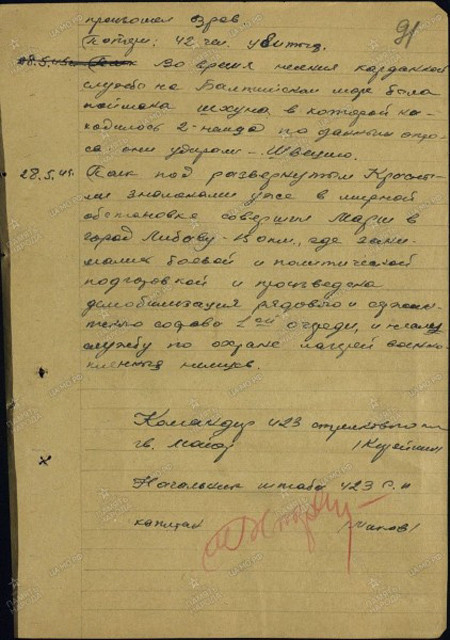 произошел взрыв
91
Потери: 42 чел. убитых.
28.5.45г. Во время несения кордонной
службы на Балтийском море была
поймана шхуна, в которой на-
ходилось 2 немца по данным опро-
са они удирали - Швецию.
28.5.45. Полк под развернутым Красны-
ми знаменами уже в мирной
обстановке совершил Марш в
город Либаву, где зани-
мались боевой и политической
подготовкой и произведена
демобилизация рядового и сержан-
тского состава 1ой очереди, и несли
службу по охране лагерей военно-
пленных немцев.
Командир 423 стрелкового
гв. майор
Начальник штаба 423 С.П
капитан